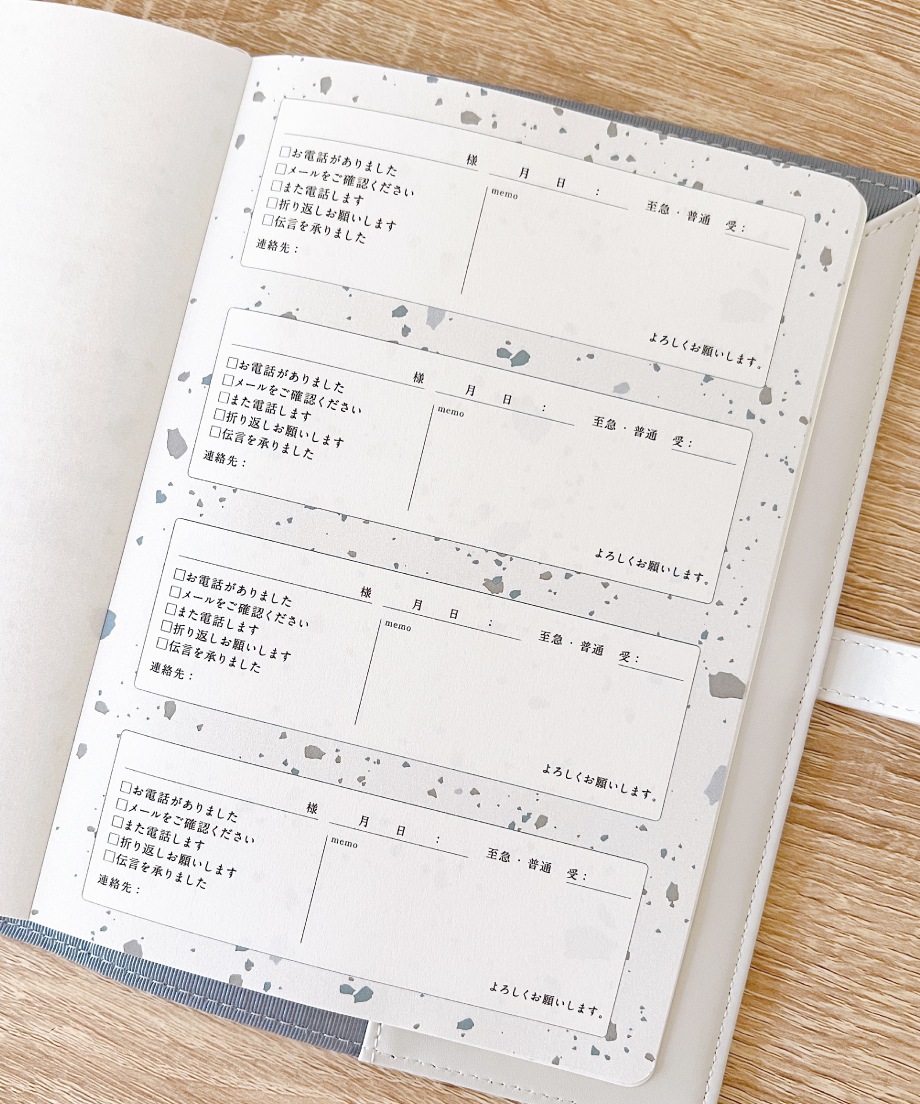 様 月 日 : 至急・普通 受：
□お電話がありました
□メールをご確認ください
□また電話します
□折り返しお願いします
□伝言を承りました
連絡先：
memo
よろしくお願いします。
様 月 日 : 至急・普通 受：
□お電話がありました
□メールをご確認ください
□また電話します
□折り返しお願いします
□伝言を承りました
連絡先：
memo
よろしくお願いします。
様 月 日 : 至急・普通 受：
□お電話がありました
□メールをご確認ください
□また電話します
□折り返しお願いします
□伝言を承りました
連絡先：
memo
よろしくお願いします。
様 月 日 : 至急・普通 受：
□お電話がありました
□メールをご確認ください
□また電話します
□折り返しお願いします
□伝言を承りました
連絡先：
memo
よろしくお願いします。